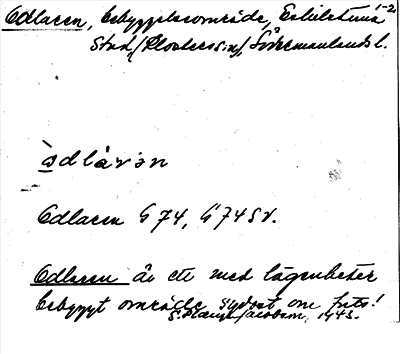 Edlaren, bebyggelseområde, Eskilstuna 1-2
Stad (Klosters sn), Södermanlands l.
ədlárən
Edlaren G 74, G 74 SV.
Edlaren är ett med lägenheter
bebyggt område sydost om fnts!
1943.